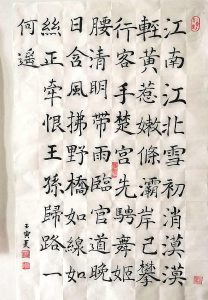 江南江北雪初消漠漠
輕黃惹嫩條灞岸已攀
行客手楚宮先騁舞姬
腰清明帶雨臨官道晚
日含風拂野橋如線如
絲正牽恨王孫歸路一
何遥
壬寅夏